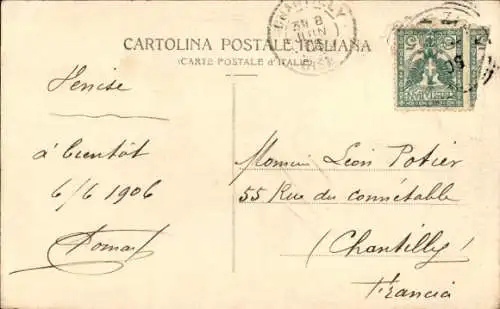 CHANTILLY
8
JUIN
CARTOLINA POSTALE ITALIANA
(CARTE POSTALE d'ITALIE)
Venise
à bientôt
6/6 1906
Monsieur Léon Potier
55 Rue du connétable
(Chantilly)
Francia